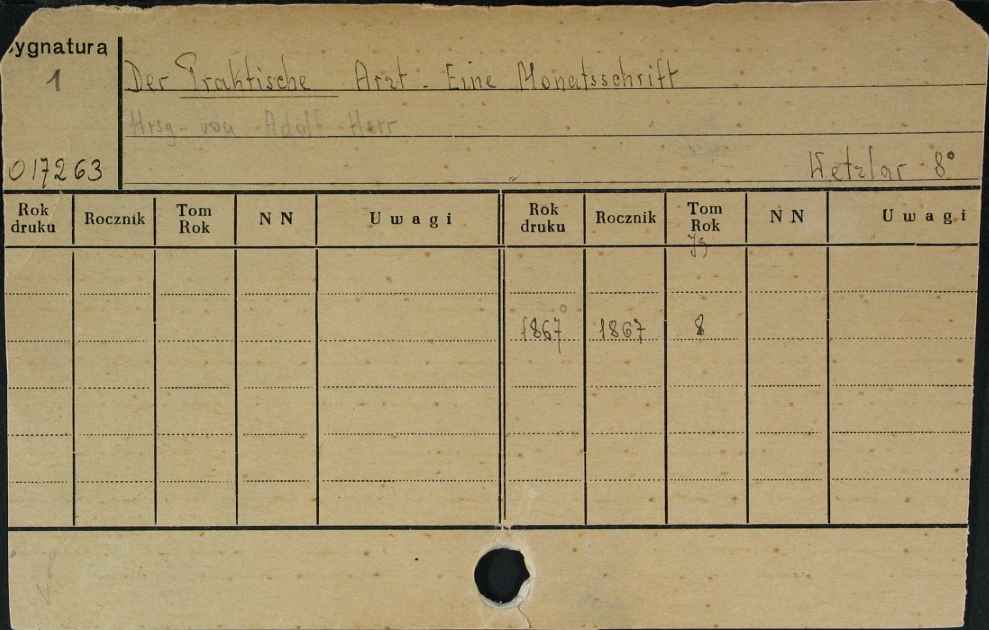 Sygnatura
1
017263
Der Praktische Arzt. Eine Monatsschrift
Hrsg. von Adolf Herr
Wetzlar 8°
Rok druku Rocznik Tom Rok NN Uwagi Rok druku Rocznik Tom Rok NN Uwagi
Jg
1867 1867 8